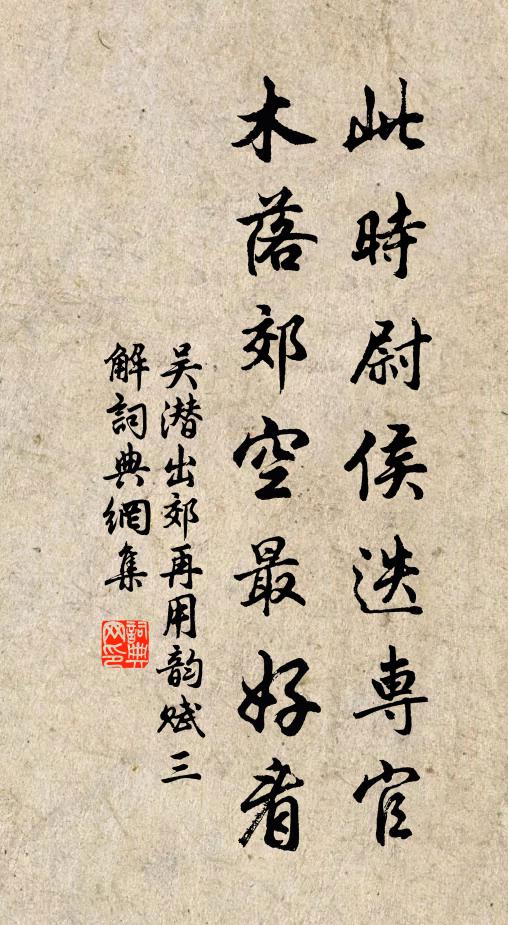 此時尉侯迭專官
木落郊空最好看
吴潜出郊再用韵赋三
解詞典網集
詞典
网印